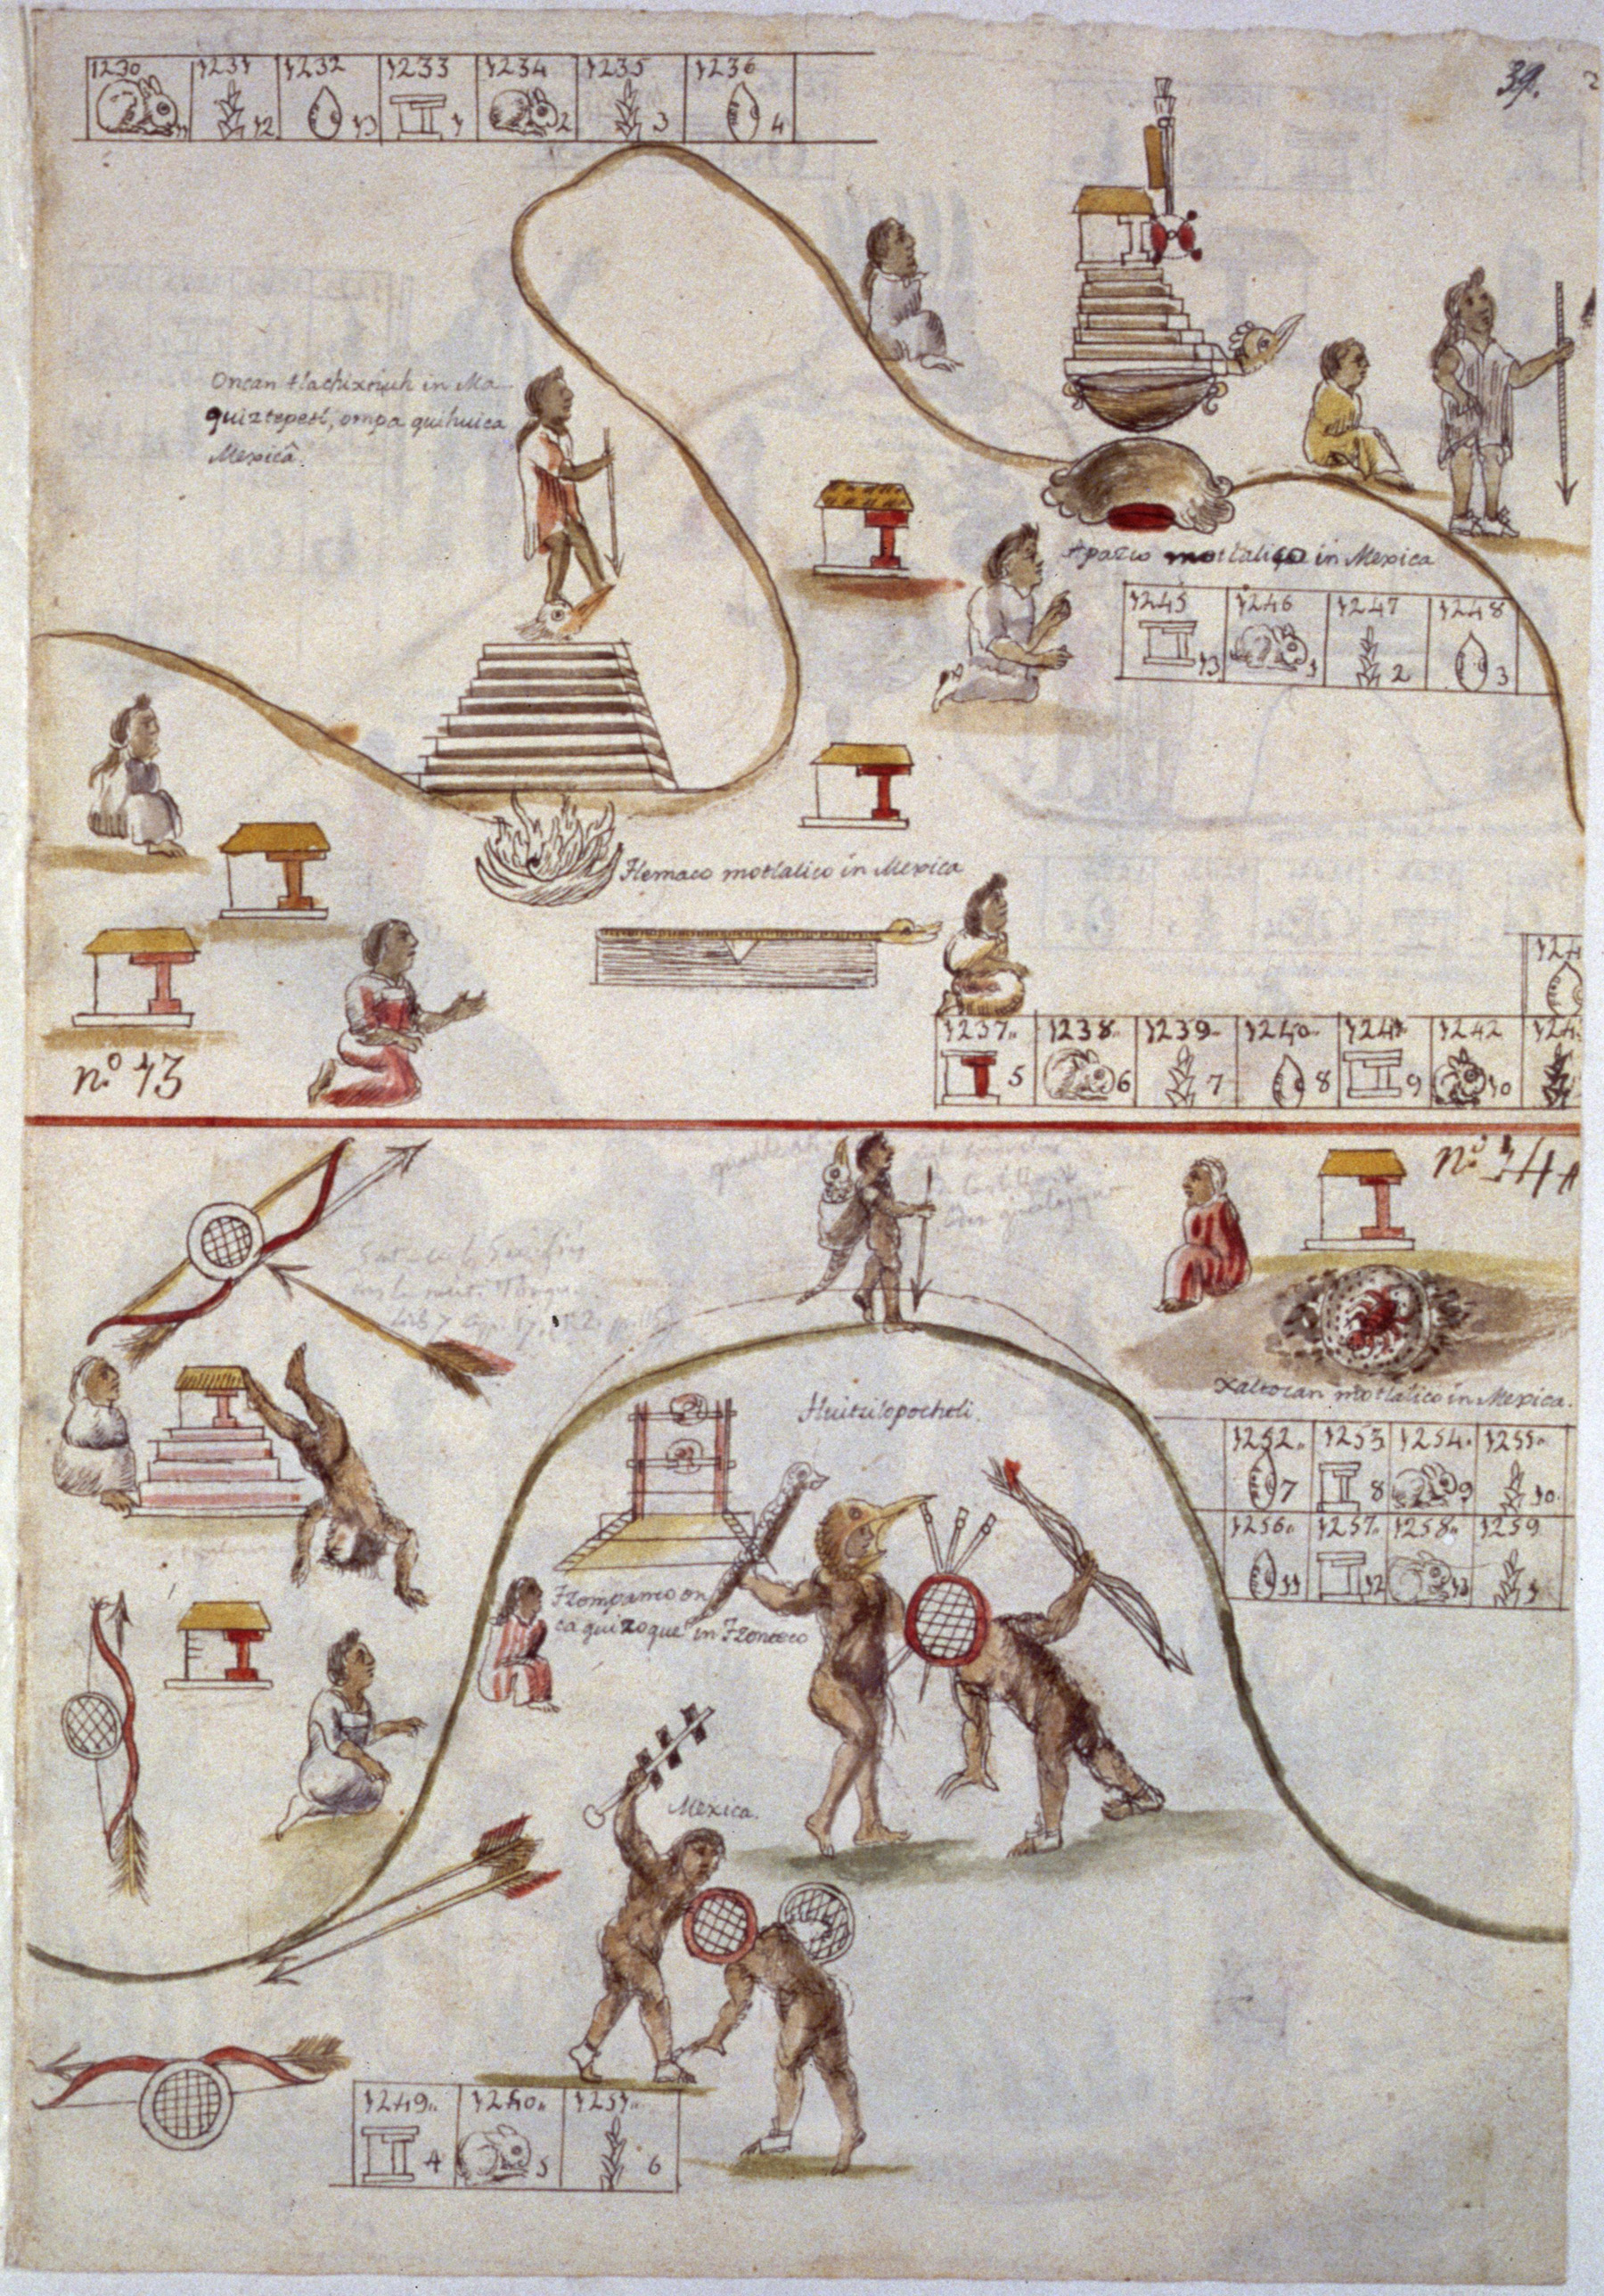 39.
1230 1231 1232 1233 1234 1235 1236
11 12 13 1 2 3 4
Oncan tlachixtiuh in Ma
quiztepetl, ompa quihuica
Mexicâ.
Apazco motlalico in Mexica
1245 1246 1247 1248
13 1 2 3
Tlemaco motlalico in Mexica
1237 1238 1239 1240 1241 1242
5 6 7 8 9 10
n.º 13
n.º 14
Xaltocan motlalico in Mexica.
1252 1253 1254 1255
7 8 9 10
1256 1257 1258 1259
11 12 13 1
Huitzilopochtli.
Tzompanco on
ca quizoque in Tzonteco
Mexica.
1249 1250 1251
4 5 6